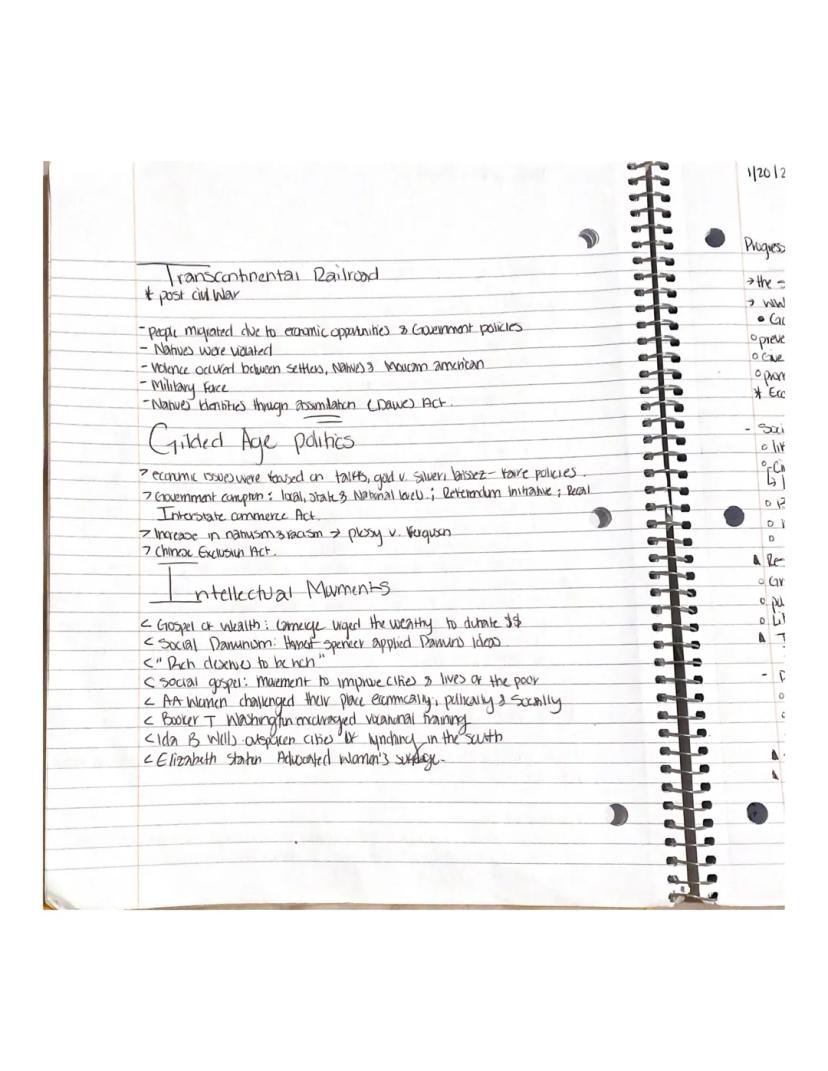 Transcontinental Railroad
* post civil War
- people migrated due to economic opportunities & Government policies
- Natives were violated
- Violence occured between settlers, Natives & Mexican american
- Military Force
- Natives identities through assimilation (Dawes) Act.
Gilded Age politics
> economic issues were focused on tariffs, gold v. silver, laissez-faire policies.
> Government corruption: local, state & National level.; Referendum Initiative; Recal
Interstate commerce Act.
> Increase in nativism & racism → plessy v. Ferguson
> Chinese Exclusion Act.
Intellectual Movments
< Gospel of wealth: Carnegie urged the wealthy to donate $$
< Social Darwinism: Herbert spencer applied Darwins Ideas
< "Rich deserves to be rich"
< Social gospel: movement to improve cities & lives of the poor
< AA Women challenged their place ecnmically, politically & Socially
< Booker T Washington encouraged vocational training
< Ida B Wells outspoken of lynching in the south
< Elizabeth Advocated Women's suffrage.
1/20/2
Progress
→ the
→ WW
• Go
o preve
o prom
* Eco
- Soci